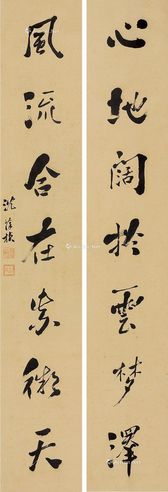 心地闊於雲夢澤
風流合在紫微天